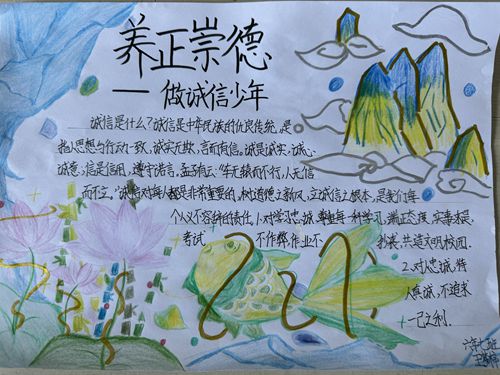 养正崇德
—做诚信少年
诚信是什么？诚信是中华民族的优良传统，是
指人思想与行动一致，诚实无欺，言而有信。诚是诚实、诚心
诚意，信是信用，遵守诺言。孟子有云：“车无辕而不行，人无信
而不立。”诚信对每人都是非常重要的，树道德之新风，立诚信之根本，是我们每
个人义不容辞的责任。1.对学习忠诚，尊重每一科学习，端正态度，实事求是，
考试 不作弊，作业不 抄袭，共造文明校园。
2.对人忠诚，待
人真诚，不追求
一己之利。
六年 班